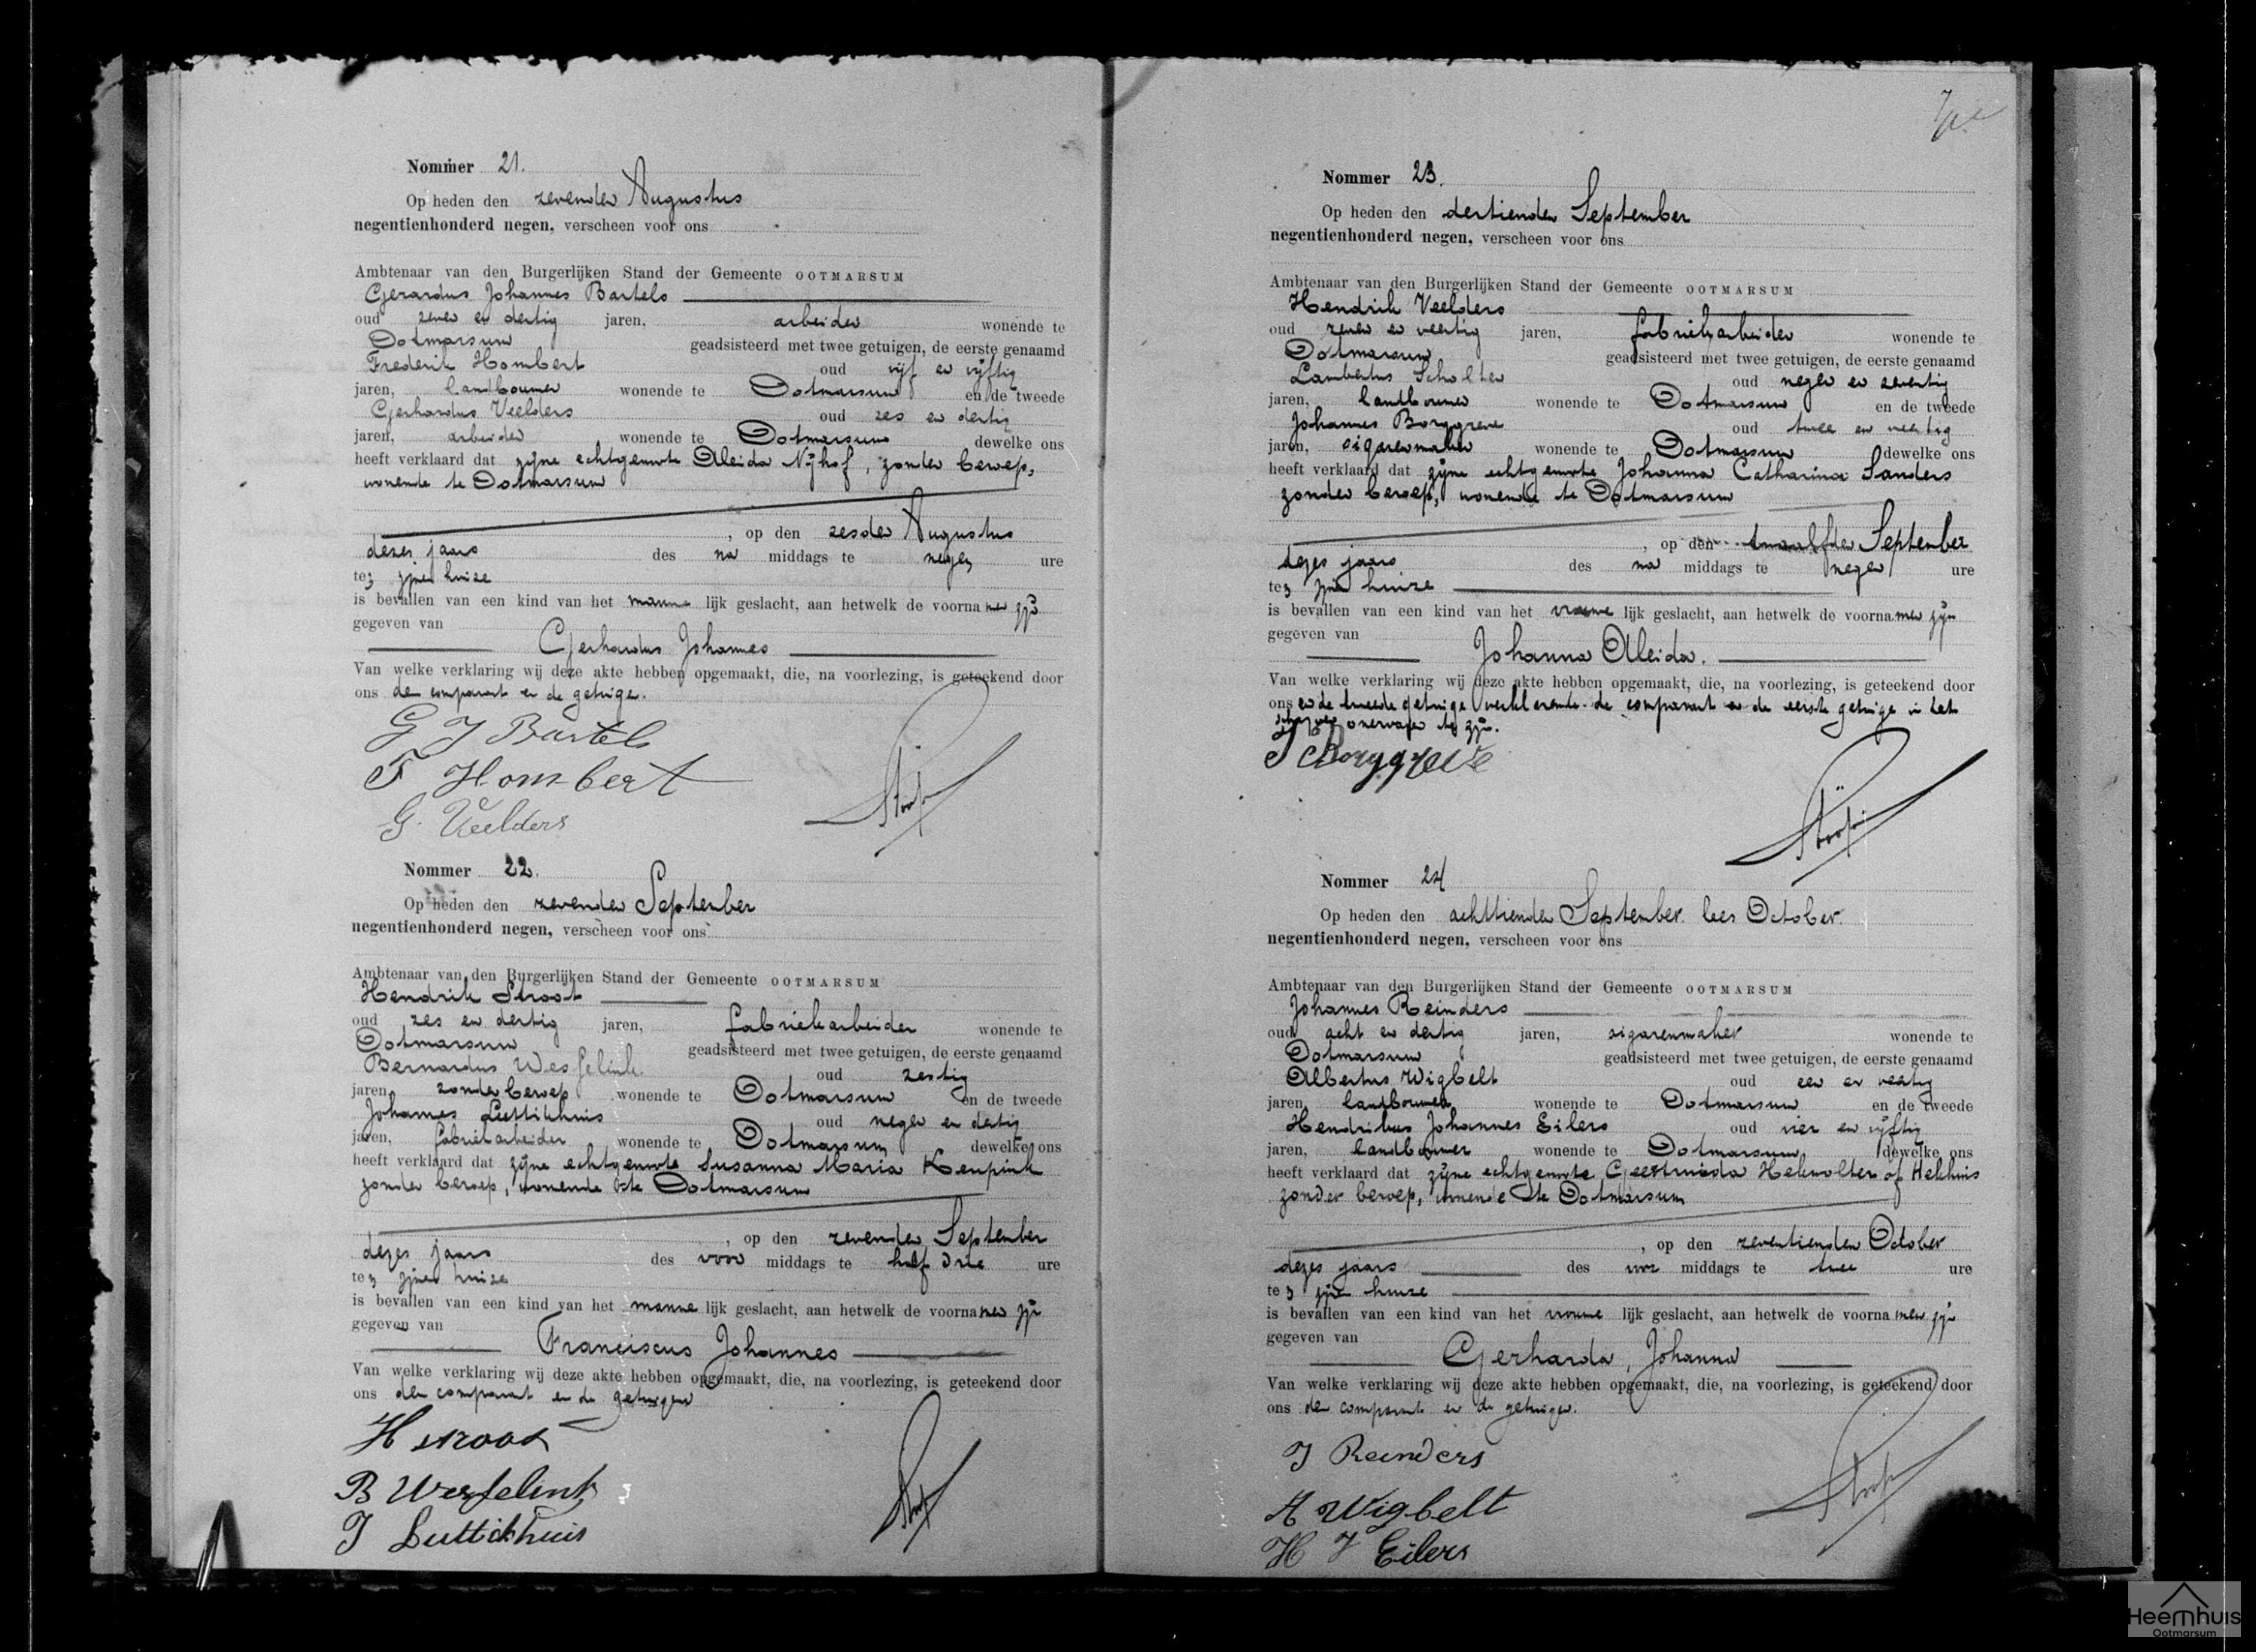 Nommer 21.
Op heden den zevenden Augustus
negentienhonderd negen, verscheen voor ons
Ambtenaar van den Burgerlijken Stand der Gemeente OOTMARSUM
Gerardus Johannes Bartels
oud zeven en dertig jaren, arbeider wonende te
Ootmarsum geadsisteerd met twee getuigen, de eerste genaamd
Frederik Hombert oud vijf en vijftig
jaren, landbouwer wonende te Ootmarsum en de tweede
Gerhardus Veelders oud zes en dertig
jaren, arbeider wonende te Ootmarsum dewelke ons
heeft verklaard dat zijne echtgenoote Aleida Nijhof, zonder beroep,
wonende te Ootmarsum
, op den zesden Augustus
dezes jaars des na middags te negen ure
te zijnen huize
is bevallen van een kind van het manne lijk geslacht, aan hetwelk de voornamen zijn
gegeven van
Gerhardus Johannes
Van welke verklaring wij deze akte hebben opgemaakt, die, na voorlezing, is geteekend door
ons den comparant en de getuigen.
G J Bartels
F Hombert
G. Veelders
Nommer 22.
Op heden den zevenden September
negentienhonderd negen, verscheen voor ons
Ambtenaar van den Burgerlijken Stand der Gemeente OOTMARSUM
Hendrik Stroot
oud zes en dertig jaren, fabriekarbeider wonende te
Ootmarsum geadsisteerd met twee getuigen, de eerste genaamd
Bernardus Wesselink oud zestig
jaren zonder beroep wonende te Ootmarsum en de tweede
Johannes Luttikhuis oud negen en dertig
jaren, fabriekarbeider wonende te Ootmarsum dewelke ons
heeft verklaard dat zijne echtgenoote Susanna Maria Keupink
zonder beroep, wonende te Ootmarsum
, op den zevenden September
dezes jaars des voor middags te half drie ure
te zijnen huize
is bevallen van een kind van het manne lijk geslacht, aan hetwelk de voornamen zijn
gegeven van
Franciscus Johannes
Van welke verklaring wij deze akte hebben opgemaakt, die, na voorlezing, is geteekend door
ons den comparant en de getuigen
H Stroot
B Wesselink
J Luttikhuis
Nommer 23.
Op heden den dertienden September
negentienhonderd negen, verscheen voor ons
Ambtenaar van den Burgerlijken Stand der Gemeente OOTMARSUM
Hendrik Veelders
oud zeven en veertig jaren, fabriekarbeider wonende te
Ootmarsum geadsisteerd met twee getuigen, de eerste genaamd
Lambertus Scholten oud negen en zeventig
jaren, landbouwer wonende te Ootmarsum en de tweede
Johannes Borggreve oud twee en veertig
jaren, sigarenmaker wonende te Ootmarsum dewelke ons
heeft verklaard dat zijne echtgenoote Johanna Catharina Sanders
zonder beroep, wonende te Ootmarsum
, op den twaalfden September
dezes jaars des na middags te negen ure
te zijnen huize
is bevallen van een kind van het vrouwe lijk geslacht, aan hetwelk de voornamen zijn
gegeven van
Johanna Aleida.
Van welke verklaring wij deze akte hebben opgemaakt, die, na voorlezing, is geteekend door
ons en de tweede getuige verklarende de comparant en de eerste getuige in het
schrijven onervaren te zijn.
J Borggreve
Nommer 24
Op heden den achttienden September lees October.
negentienhonderd negen, verscheen voor ons
Ambtenaar van den Burgerlijken Stand der Gemeente OOTMARSUM
Johannes Reinders
oud acht en dertig jaren, sigarenmaker wonende te
Ootmarsum geadsisteerd met twee getuigen, de eerste genaamd
Albertus Wigbelt oud een en veertig
jaren, landbouwer wonende te Ootmarsum en de tweede
Hendrikus Johannes Eilers oud vier en vijftig
jaren, landbouwer wonende te Ootmarsum dewelke ons
heeft verklaard dat zijne echtgenoote Geertruida Hekwolter of Hekhuis
zonder beroep, wonende te Ootmarsum
, op den zeventienden October
dezes jaars des voor middags te twee ure
te zijnen huize
is bevallen van een kind van het vrouwe lijk geslacht, aan hetwelk de voornamen zijn
gegeven van
Gerharda, Johanna
Van welke verklaring wij deze akte hebben opgemaakt, die, na voorlezing, is geteekend door
ons den comparant en de getuigen.
J Reinders
A Wigbelt
H J Eilers
Heemhuis
Ootmarsum